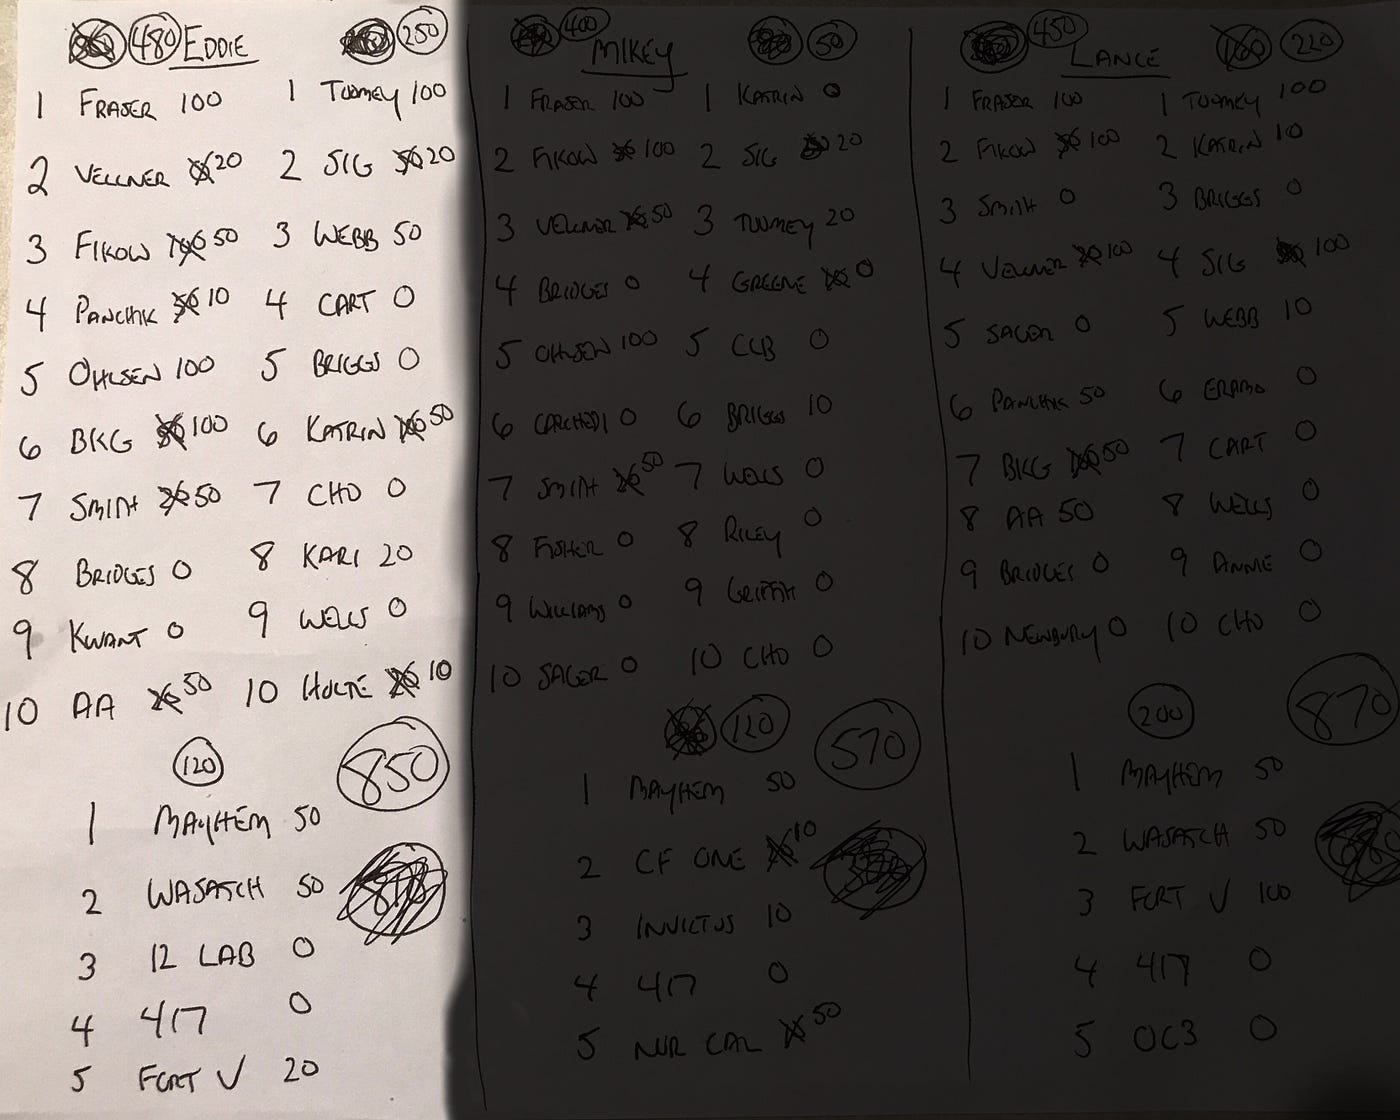 480 EDDIE 250
1 FRASER 100 1 TOOMEY 100
2 VELLNER 20 2 SIG 20
3 FIKOW 50 3 WEBB 50
4 PANCHIK 10 4 CART 0
5 OHLSEN 100 5 BRIGGS 0
6 BKG 100 6 KATRIN 50
7 SMITH 50 7 CHO 0
8 BRIDGES 0 8 KARI 20
9 KWANT 0 9 WELLS 0
10 AA 50 10 HOLTE 10
120 850
1 MAYHEM 50
2 WASATCH 50
3 12 LAB 0
4 417 0
5 FORT V 20
400 MIKEY 50
1 FRASER 100 1 KATRIN 0
2 FIKOW 100 2 SIG 20
3 VELLNER 50 3 TOOMEY 20
4 BRIDGES 0 4 GREENE 0
5 OHLSEN 100 5 CLB 0
6 CARCHEDI 0 6 BRIGGS 10
7 SMITH 50 7 WELLS 0
8 FISHER 0 8 RILEY 0
9 WILLIAMS 0 9 GRIFFITH 0
10 SAGER 0 10 CHO 0
120 570
1 MAYHEM 50
2 CF ONE 10
3 INVICTUS 10
4 417 0
5 NOR CAL 50
450 LANCE 220
1 FRASER 100 1 TOOMEY 100
2 FIKOW 100 2 KATRIN 10
3 SMITH 0 3 BRIGGS 0
4 VELLNER 100 4 SIG 100
5 SAGER 0 5 WEBB 10
6 PANCHIK 50 6 ERAMO 0
7 BKG 50 7 CART 0
8 AA 50 8 WELLS 0
9 BRIDGES 0 9 ANNIE 0
10 NEWBURY 0 10 CHO 0
200 870
1 MAYHEM 50
2 WASATCH 50
3 FORT V 100
4 417 0
5 OC3 0